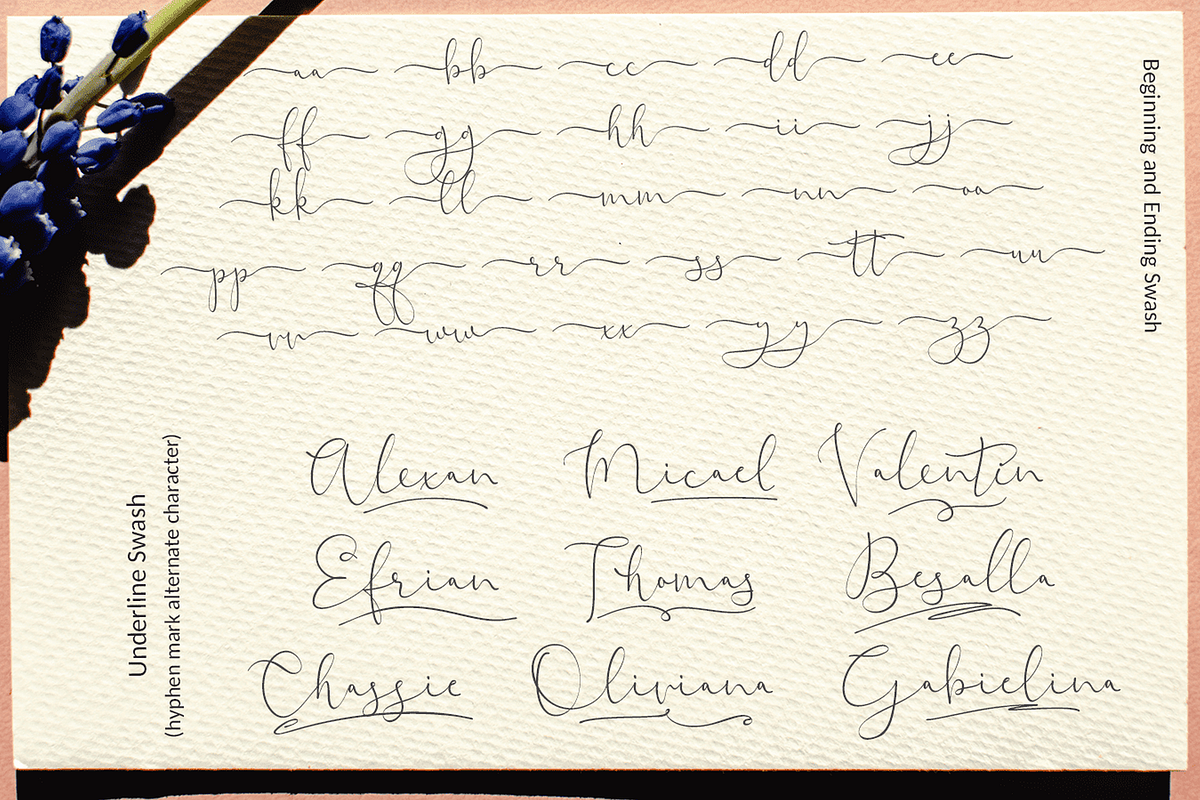 aa bb cc dd ee
ff gg hh ii jj
kk ll mm nn oo
pp qq rr ss tt uu
vv ww xx yy zz
Beginning and Ending Swash
Underline Swash
(hyphen mark alternate character)
Alexan Micael Valentin
Efrian Thomas Besalla
Chassie Oliviana Gabielina